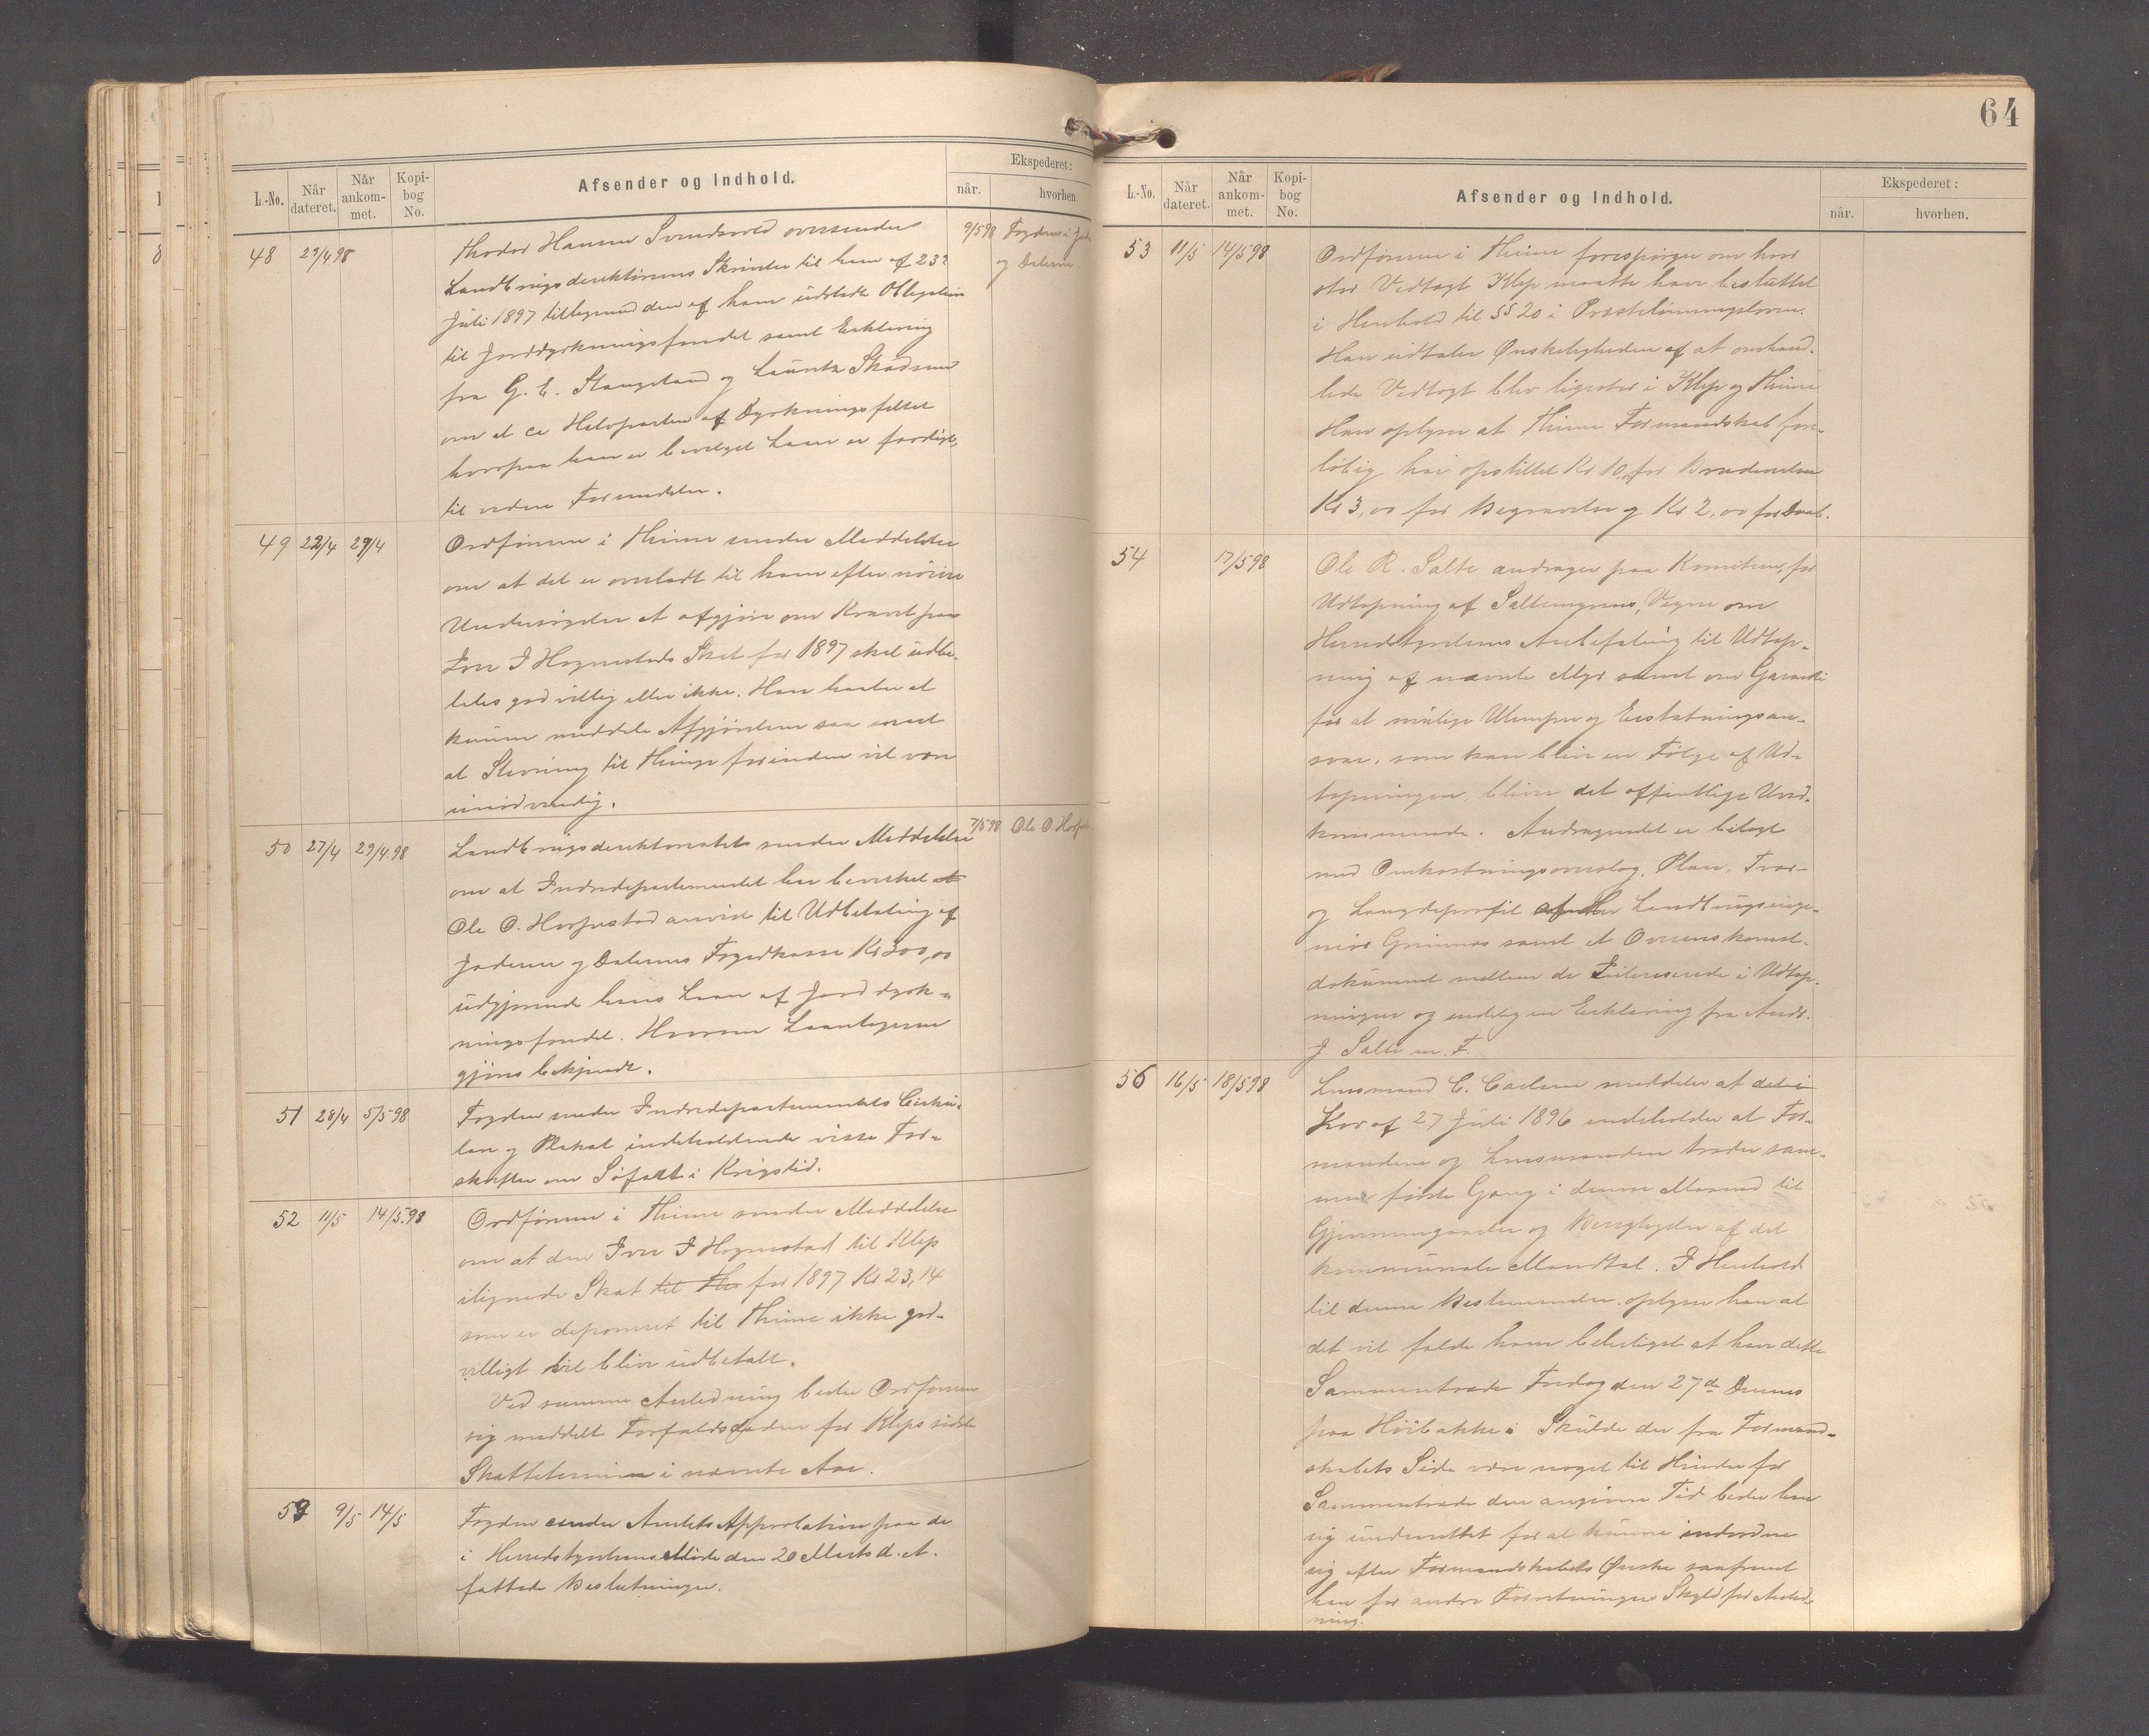 L.-No. Når dateret. Når ankom-met. Kopi-bog No. Afsender og Indhold. Ekspederet: når. hvorhen.
48 29/4 98 Thodor Hansen Svendsvold oversender 9/5 98 Fogden i Jæd.
Landbrugsdirektørens Skrivelse til ham af 23? og Dalerne.
Juli 1897 tilligemed den af ham udstedte Obligation
til Jorddyrkningsfondet samt Erklæring
fra G. E. Stangeland og Lauritz Skadsem
om at ca Halvparten af Dyrkningsfeltet
hvorpaa han er bevilget Laan er færdigt,
til videre Formidler.
49 22/4 29/4 Ordføreren i Thime sender Meddelelse
om at det er overladt til ham efter nøiere
Undersøgelse at afgjøre om Kravet paa
Iver I Hognestads Skat for 1897 skal udbe-
tales godvillig eller ikke. Han haaber at
kunne meddele Afgjørelsen saa snart
at Stevning til Thinge forinden vil være
unødvendig.
50 27/4 29/4.98 Landbrugsdirektoratets sender Meddelelse 7/5 98 Ole O. Horpestad
om at Indredepartementet har bevirket at
Ole O. Horpestad anvist til Udbetaling af
Jæderen og Dalernes Fogedkasse Kr 300,00
udgjørende hans Laan af Jorddyrk-
ningsfondet. Hvorom Laantageren
gjøres bekjendt.
51 28/4 5/5 98 Fogden sender Indredepartementets Cirku-
lær og Plakat indeholdende visse For-
skrifter om Søfart i Krigstid.
52 11/5 14/5.98 Ordføreren i Thime sender Meddelelse
om at den Iver I Hognestad til Klep
ilignede Skat til Thi for 1897 Kr 23,14
som er deponeret til Thime ikke god-
villigt vil blive udbetalt.
Ved samme Anledning beder Ordføreren
sig meddelt Forfaldsdagen for Kleps sidste
Skattetermin i nævnte Aar.
53 9/5 14/5 Fogden sender Amtets Approbation paa de
i Herredstyrelsens Møde den 20 Marts d. A.
fattede Beslutninger.
64
L.-No. Når dateret. Når ankom-met. Kopi-bog No. Afsender og Indhold. Ekspederet: når. hvorhen.
53 11/5 14/5 98 Ordføreren i Thime forespørger om hvad
slør Vedtagt Klep maatte have besluttet
i Henhold til §§ 20 i Præstelønningsloven.
Han udtaler Ønskeligheden af at omhand-
lede Vedtagt blev ligestor i Klep og Thime
Han oplyser at Thime Formandskab fore-
løbig har opstillet Kr 10,00 for Brudevielser
Kr 3,00 for Begravelse og Kr 2,00 for Daab.
54 17/5 98 Ole R. Salte andrager paa Komiteen, for
Udtapning af Saltemyrens, Vegne om
Herredstyrelsens Anbefaling til Udtap-
ning af nævnte Myr samt om Garanti
for at mulige Ulemper og Erstatningsan-
svar, som kan blive en Følge af Ud-
tapningen, blive det offentlige Uved-
kommende. Andragendet er bilagt
med Omkostningsoverslag, Plan, Tvær-
og Længdeprofil af Hr Landbrugsinge-
niør Grimnes samt et Overenskomst-
dokument mellem de Interesserede i Udtap-
ningen og endelig en Erklæring fra Andr.
J. Salte m. F.
56 16/5 18/5 98 Lensmand C. Carlsen meddeler at det i
Lov af 27 Juli 1896 indeholder at For-
mændene og Lensmanden træder sam-
men første Gang i denne Maaned til
Gjennemgaaelse og Berigtigelse af det
kommunale Mandtal. I Henhold
til denne Bestemmelse oplyser han at
det vil falde ham beleiligst at have dette
Sammentræde Fredag den 27de Dennes
paa Høibakke. Skulde der fra Formand-
skabets Side være noget til Hinder for
Sammentræde den angivne Tid beder han
sig underrettet for at kunne indordne
sig efter Formandskabets Ønske saafremt
han for andre Forretningers Skyld får Anled-
ning.